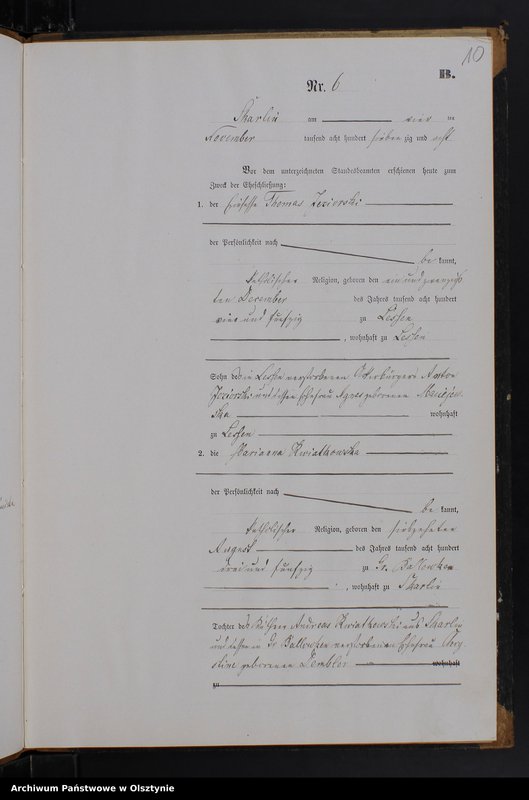 10
B.
Nr. 6
Skarlin am vier ten
November tausend acht hundert sieben zig und acht
Vor dem unterzeichneten Standesbeamten erschienen heute zum
Zweck der Eheschließung:
1. der Thomas Jeziorski
der Persönlichkeit nach
be kannt,
katholischer Religion, geboren den ein und zwanzigs
ten December des Jahres tausend acht hundert
vier und fünfzig zu Lessen
, wohnhaft zu Lessen
Sohn des in Lessen verstorbenen Ackerbürgers Anton
Jeziorski und dessen Ehefrau Agnes geborenen
ska wohnhaft
zu Lessen
2. die Marianna Kwiatkowska
der Persönlichkeit nach
be kannt,
katholischer Religion, geboren den siebzehnten
August des Jahres tausend acht hundert
drei und fünfzig zu Gr. Ballowken
, wohnhaft zu Skarlin
Tochter des Andreas Kwiatkowski aus Skarlin
und dessen in Gr Ballowken verstorbenen Ehefrau
geborenen wohnhaft
zu
Archiwum Państwowe w Olsztynie